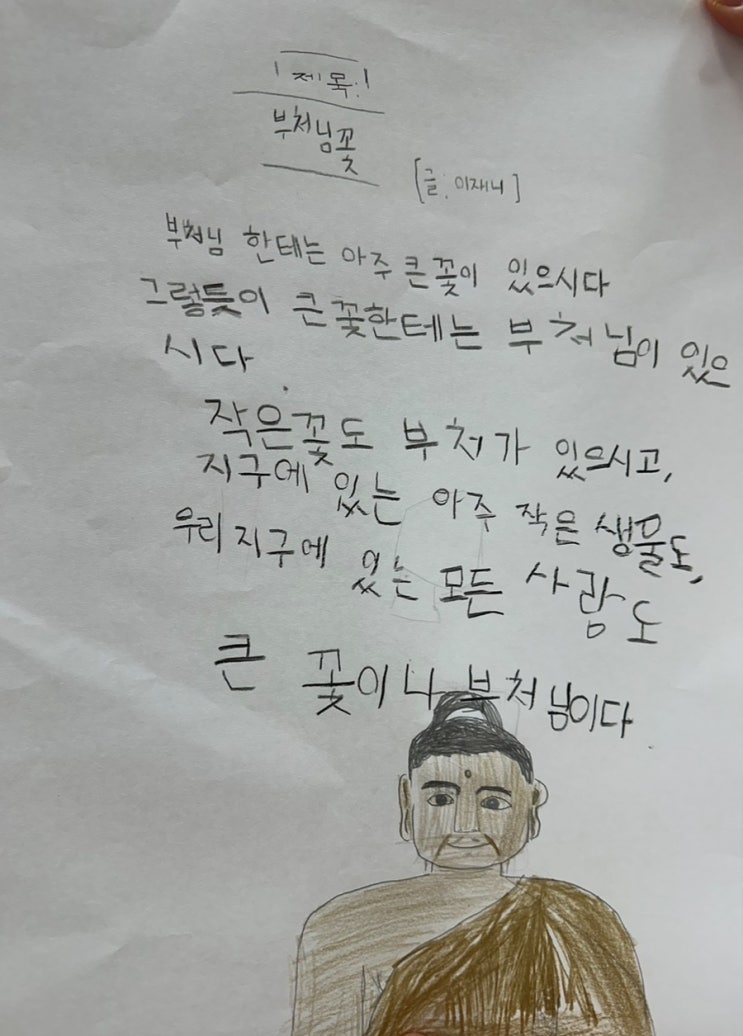 제목!
부처님꽃
[글: 이재니]
부처님 한테는 아주 큰 꽃이 있으시다
그렇듯이 큰 꽃한테는 부처님이 있으
시다.
작은 꽃도 부처가 있으시고,
지구에 있는 아주 작은 생물도,
우리 지구에 있는 모든 사람도
큰 꽃이나 부처님이다.